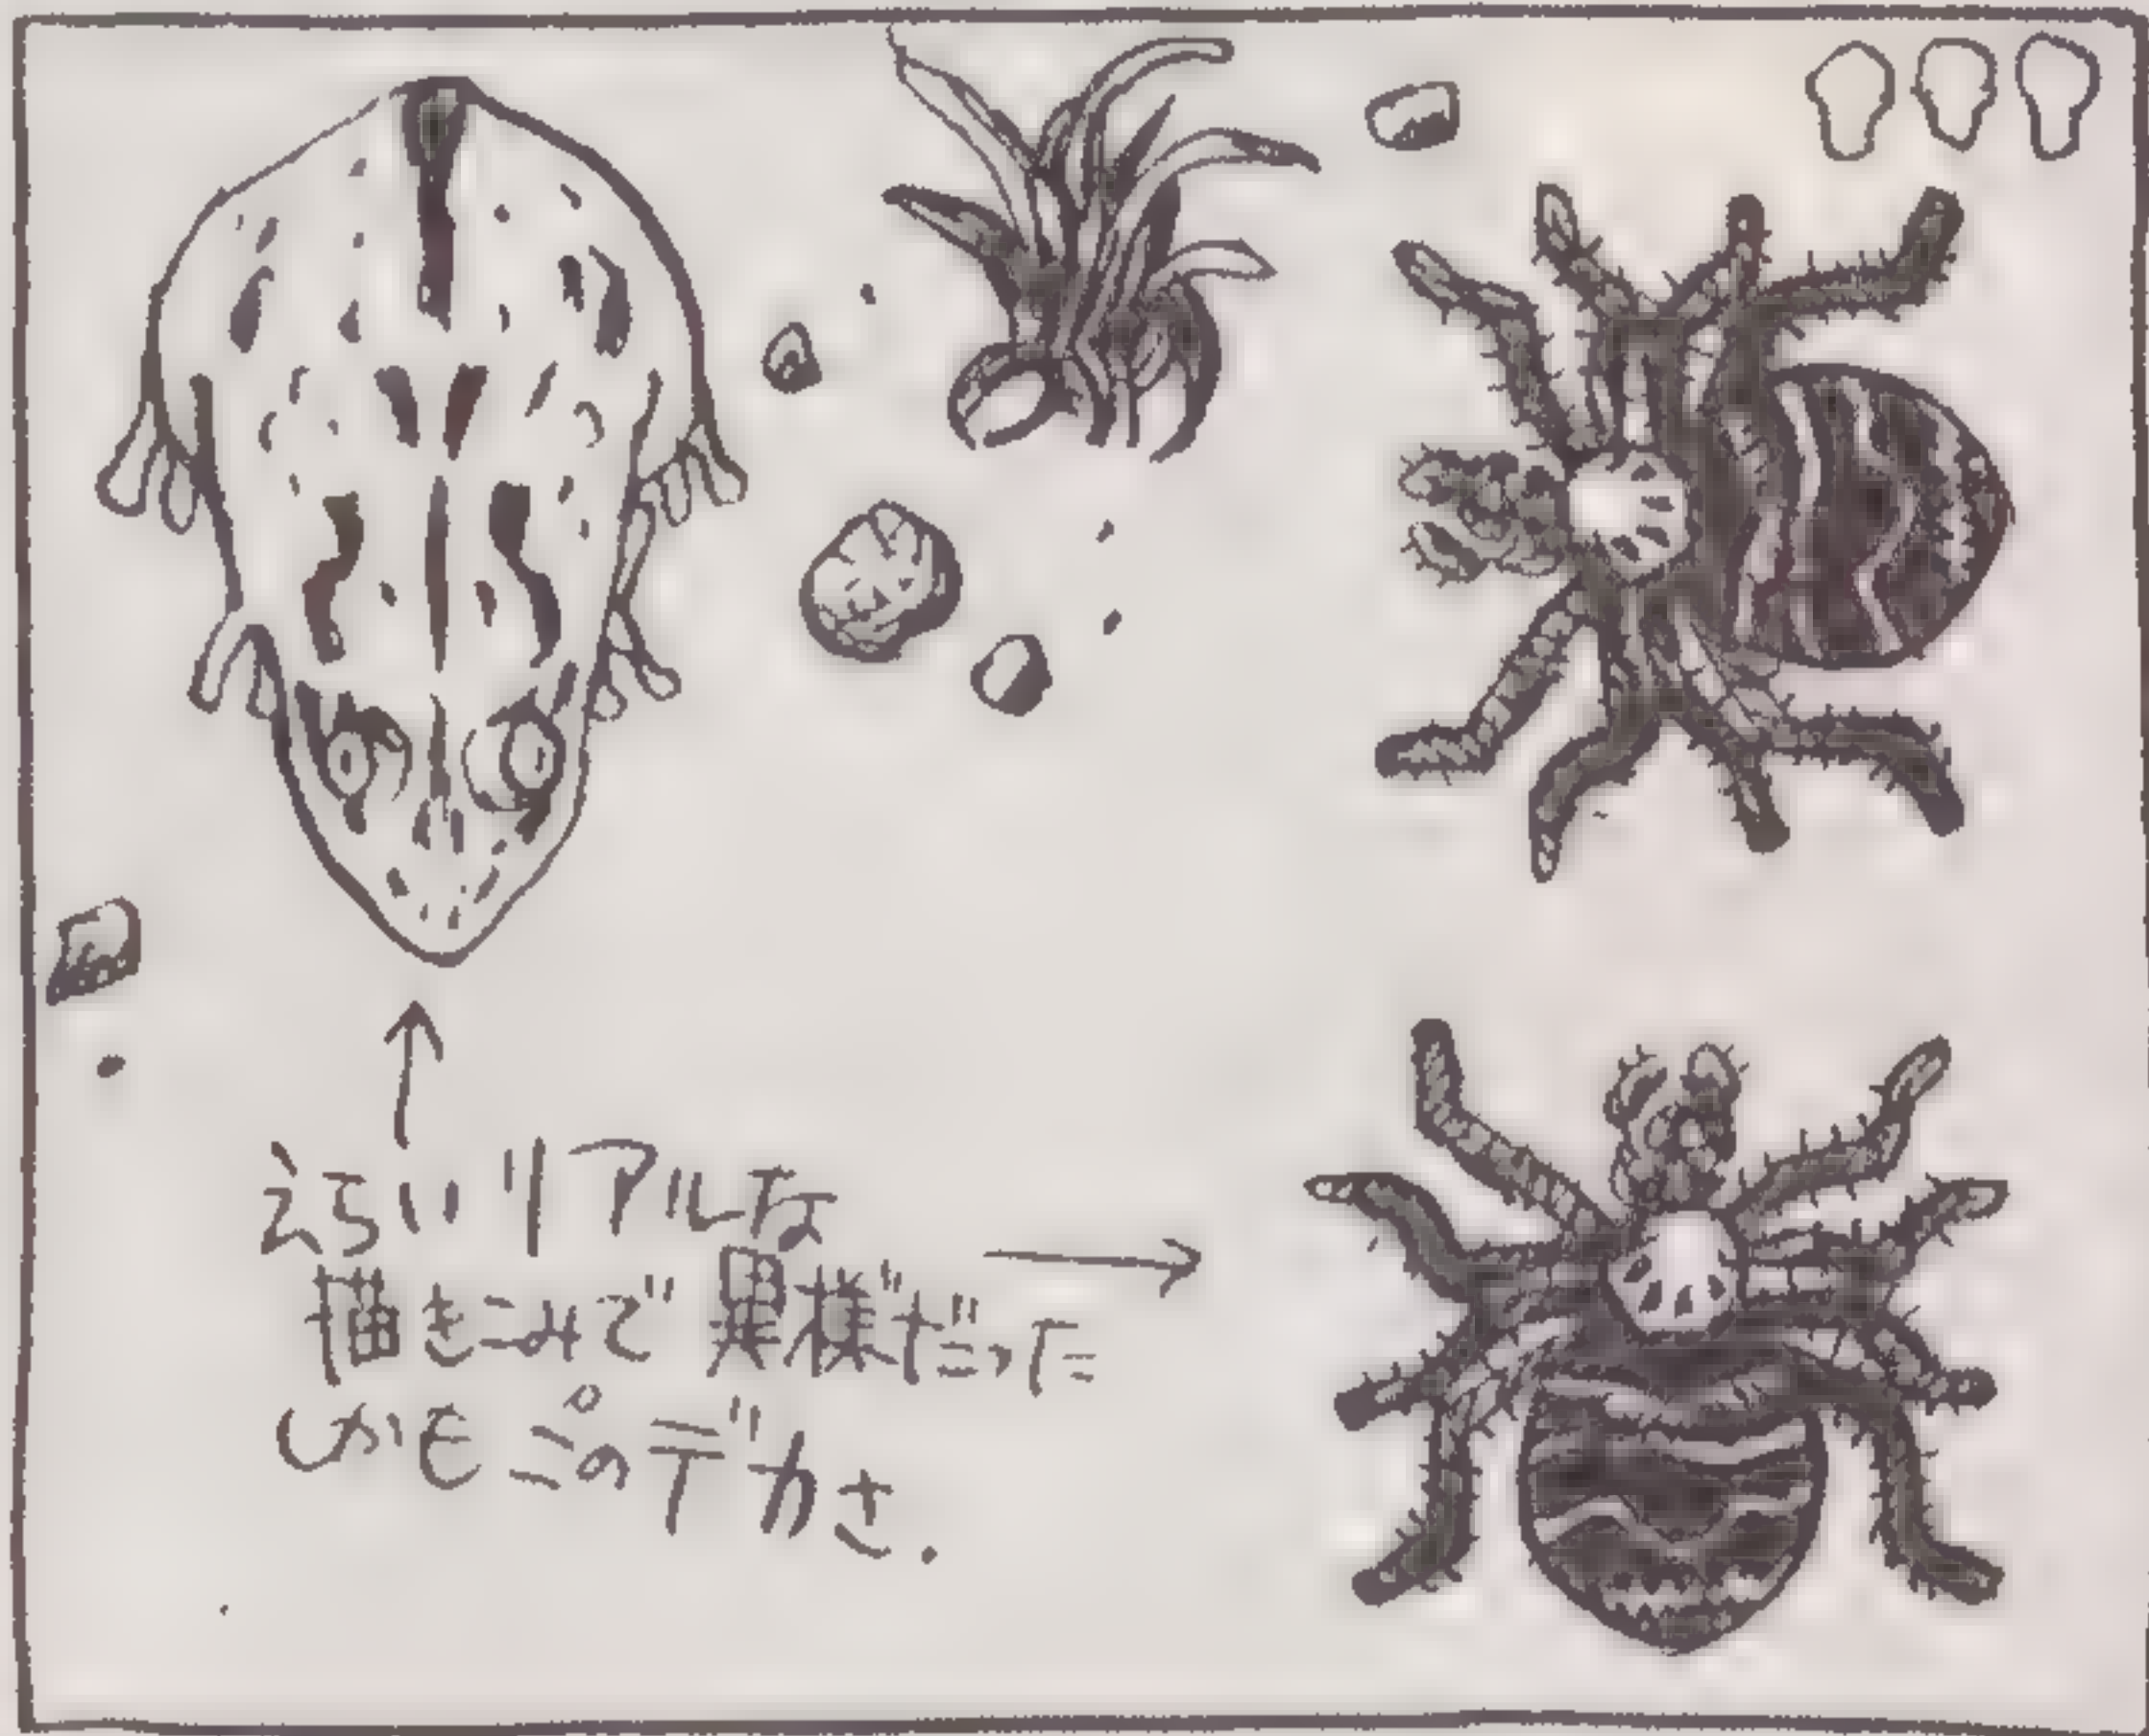 えらいリアルな
描きこみで異様だった
しかもこのデカさ.